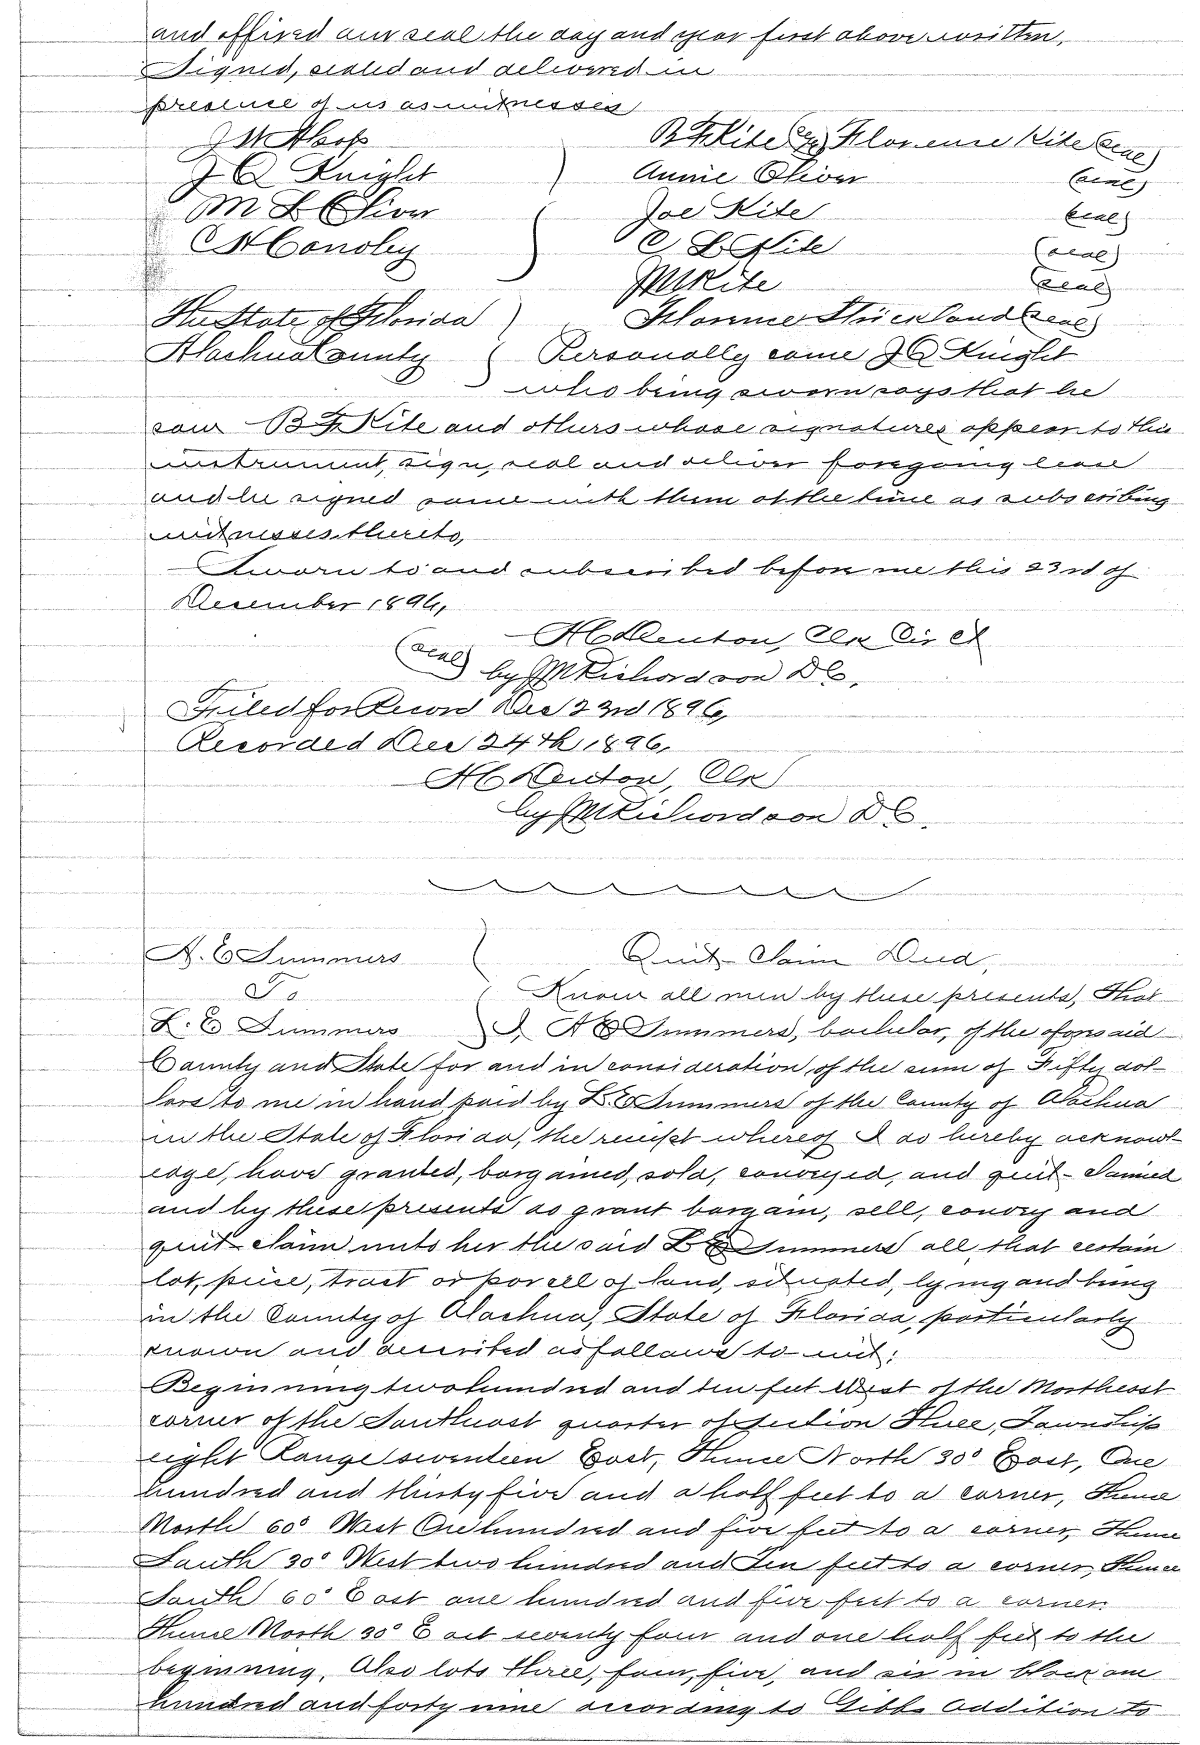 and affixed our seal the day and year first above written.
Signed, sealed and delivered in
presence of us as witnesses
J G Knight
B F Kite by Florence Kite (seal)
Annie Oliver (seal)
M L Oliver
Joe Kite (seal)
C L Kite (seal)
J M Kite (seal)
The State of Florida
Florence Strickland (seal)
Alachua County Personally came J G Knight
who being sworn says that he
saw B F Kite and others whose signatures appear to this
instrument, sign, seal and deliver foregoing lease
and he signed same with them at the time as subscribing
witnesses thereto,
Sworn to and subscribed before me this 23rd of
December 1896,
H C Denton, Clk Cir Ct
(seal) by J M Richardson D C.
Filed for Record Dec 23rd 1896,
Recorded Dec 24th 1896,
H C Denton, Clk
by J M Richardson D C.
A. E Summers Quit-Claim Deed,
To Know all men by these presents, That
L. E Summers I, A E Summers, bachelor, of the aforesaid
County and State for and in consideration of the sum of Fifty dol-
lars to me in hand paid by L. E Summers of the County of Alachua
in the State of Florida, the receipt whereof I do hereby acknowl-
edge, have granted, bargained, sold, conveyed, and quit-claimed
and by these presents do grant bargain, sell, convey and
quit-claim unto her the said L E Summers all that certain
lot, piece, tract or parcell of land, situated, lying and being
in the County of Alachua, State of Florida, particularly
known and described as follows to-wit:
Beginning two hundred and ten feet West of the Northeast
corner of the Southeast quarter of Section Three, Township
eight Range seventeen East, Thence North 30° East, One
hundred and thirty five and a half feet to a corner, Thence
North 60° West One hundred and five feet to a corner, Thence
South 30° West two hundred and Ten feet to a corner, Thence
South 60° East one hundred and five feet to a corner.
Thence North 30° East seventy four and one half feet to the
beginning. Also lots three, four, five, and six in block one
hundred and forty nine according to Gibbs Addition to